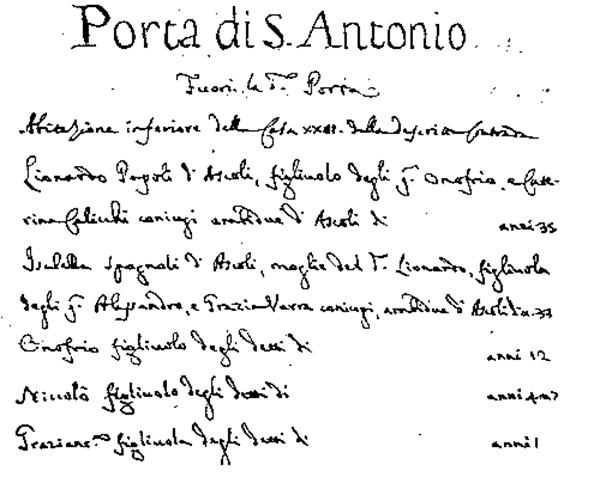 Porta di S. Antonio
Fuori la d.ª Porta
Abitazione inferiore della Casa XXII. della descritta Contrada
Lionardo Popoli d'Ascoli, figliuolo degli q. Onofrio, e Cate-
rina coniugi ambidue d'Ascoli di anni 35
Isabella Spagnoli d'Ascoli, moglie del d.º Lionardo, figliuola
degli q. Alessandro, e Grazia Varra coniugi, ambidue d'Ascoli d'a. 33
Onofrio figliuolo degli detti di anni 12
Niccolò figliuolo degli detti di anni 4 m 7
figliuola degli detti di anni 1